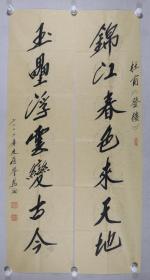 錦江春色來天地
玉壘浮雲變古今
杜甫登樓